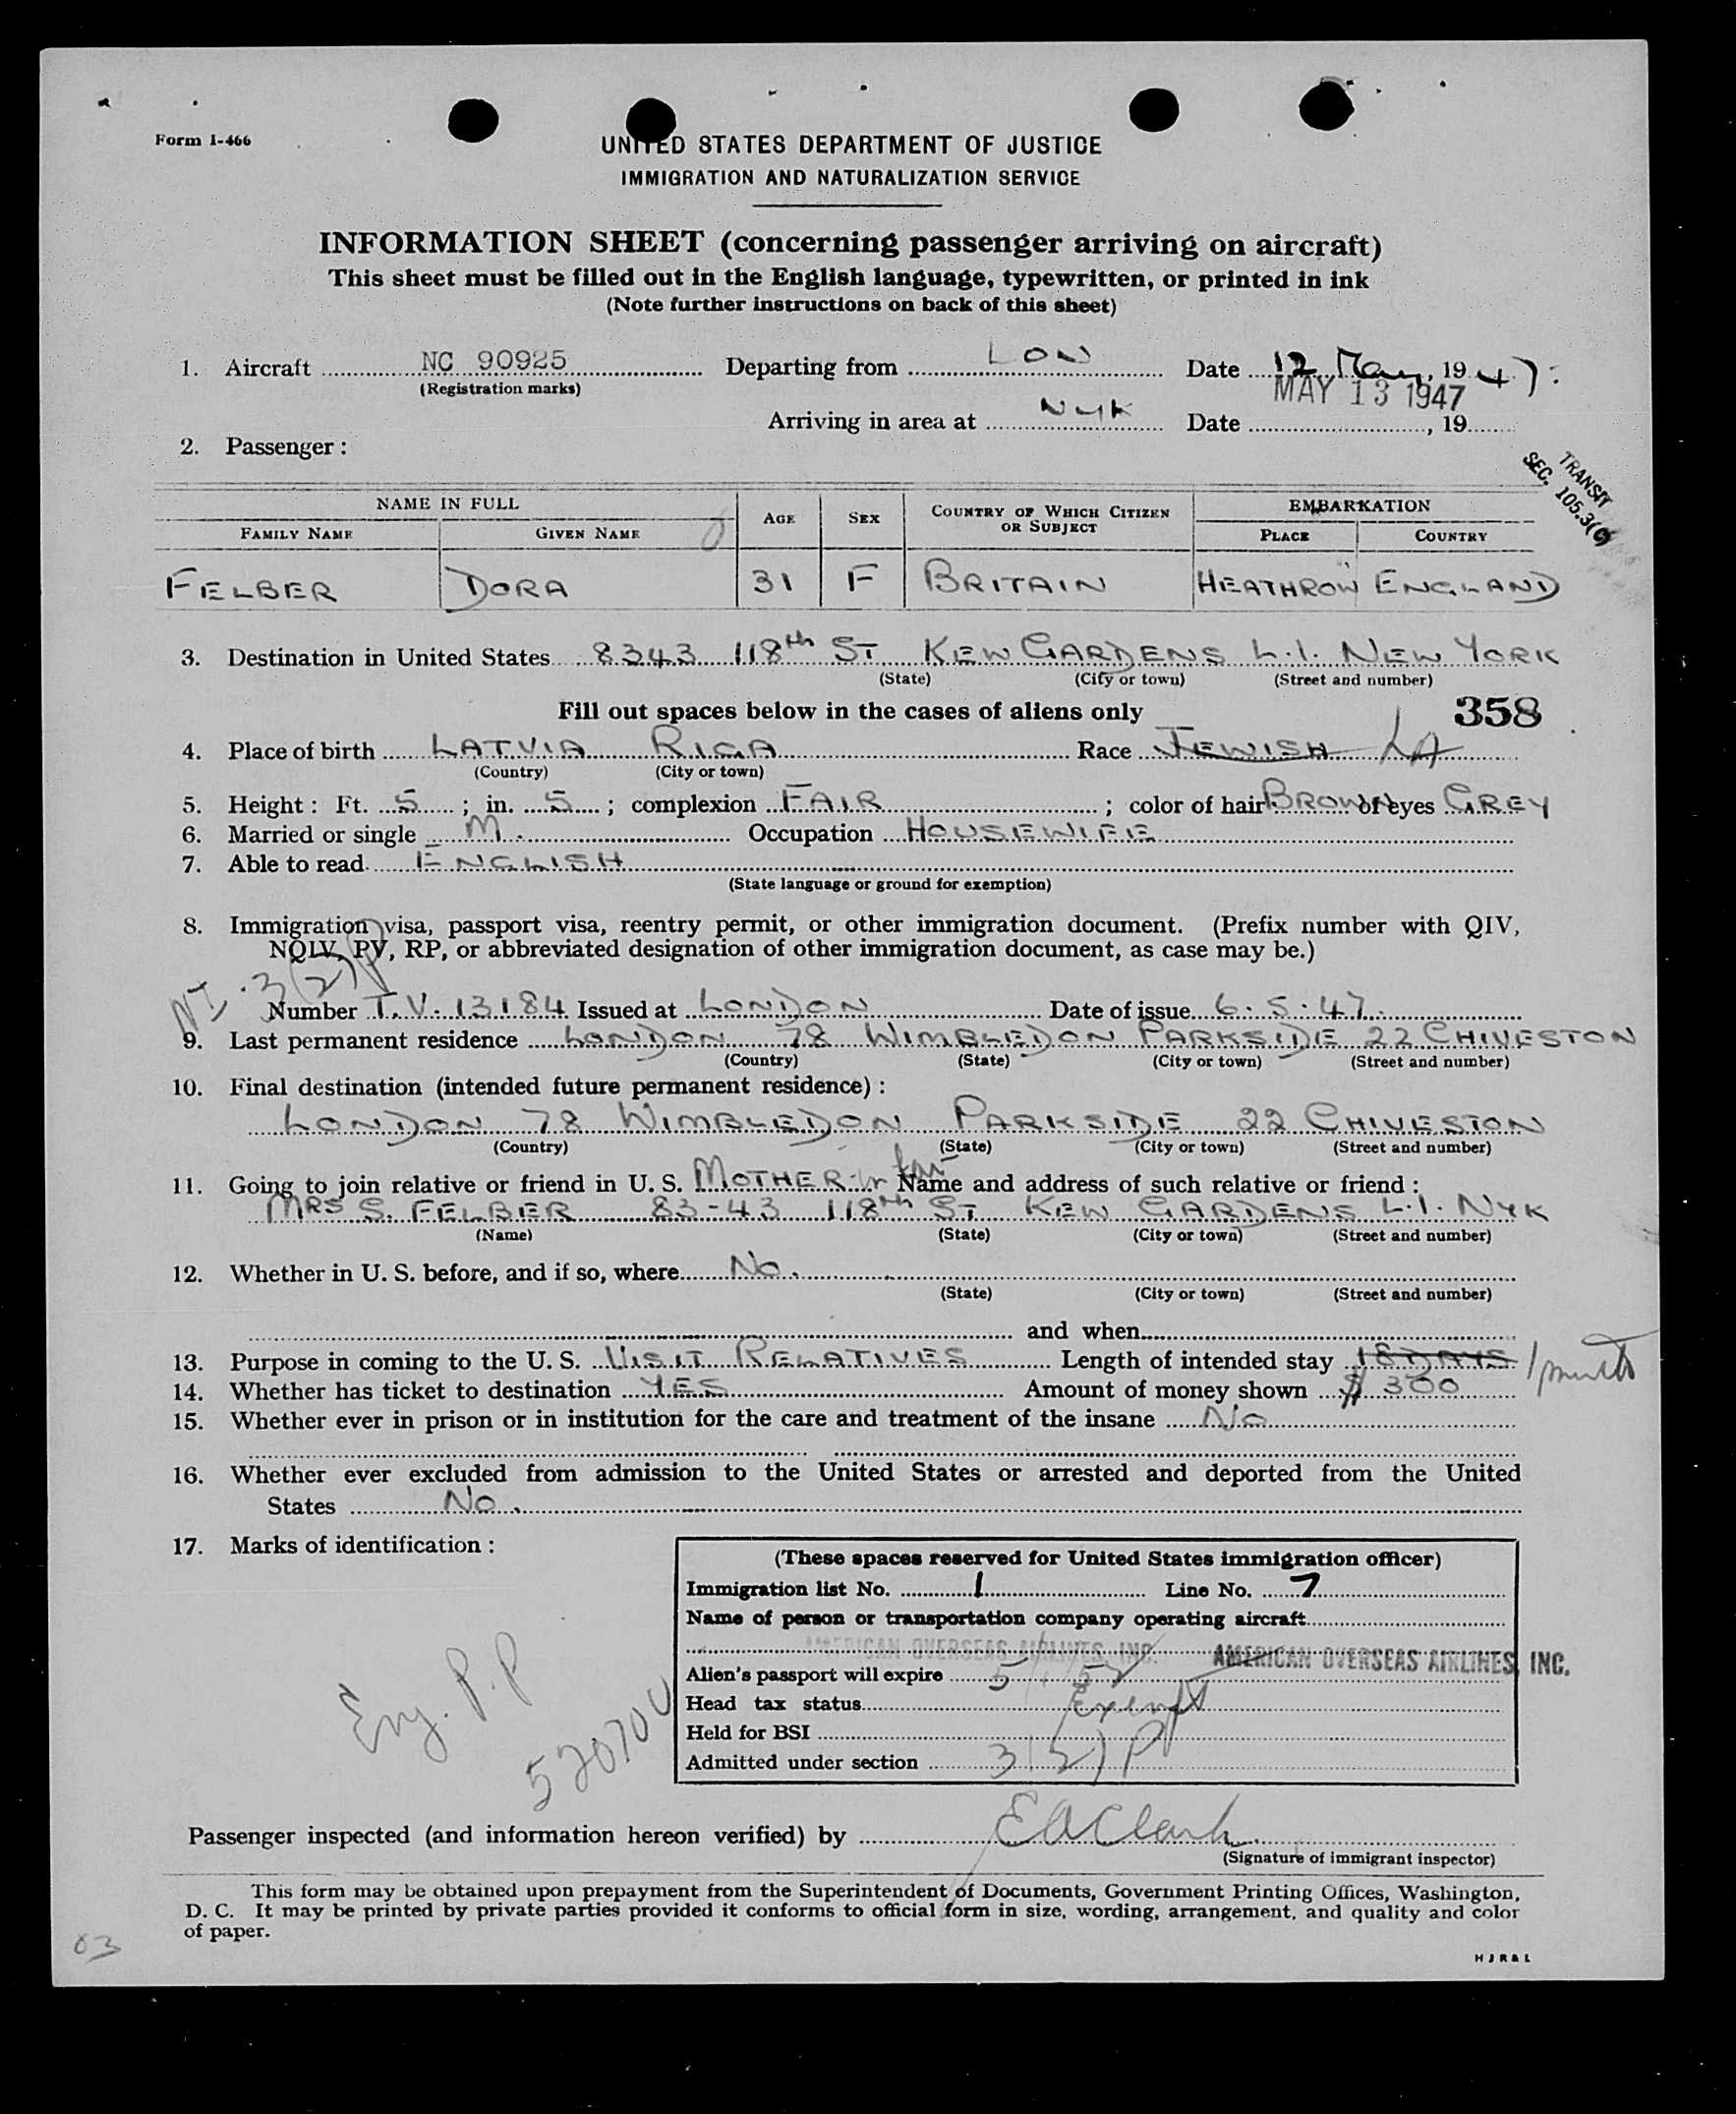 Form I-466
UNITED STATES DEPARTMENT OF JUSTICE
IMMIGRATION AND NATURALIZATION SERVICE
INFORMATION SHEET (concerning passenger arriving on aircraft)
This sheet must be filled out in the English language, typewritten, or printed in ink
(Note further instructions on back of this sheet)
1. Aircraft NC 90925 Departing from LON Date 12 May, 1947.
(Registration marks) MAY 13 1947
Arriving in area at NYK Date , 19
2. Passenger :
TRANSIT
SEC. 105.3(c)
NAME IN FULL AGE SEX COUNTRY OF WHICH CITIZEN OR SUBJECT EMBARKATION
FAMILY NAME GIVEN NAME PLACE COUNTRY
FELBER DORA 31 F BRITAIN HEATHROW ENGLAND
3. Destination in United States 8343 118th ST KEW GARDENS L.I. NEW YORK
(State) (City or town) (Street and number)
Fill out spaces below in the cases of aliens only 358
4. Place of birth LATVIA RIGA Race JEWISH LA
(Country) (City or town)
5. Height : Ft. 5 ; in. 5 ; complexion FAIR ; color of hair BROWN of eyes GREY
6. Married or single M. Occupation HOUSEWIFE
7. Able to read ENGLISH
(State language or ground for exemption)
8. Immigration visa, passport visa, reentry permit, or other immigration document. (Prefix number with QIV,
NQIV, PV, RP, or abbreviated designation of other immigration document, as case may be.)
NI. 3(2)P
Number T.V. 13184 Issued at LONDON Date of issue 6.5.47.
9. Last permanent residence LONDON 78 WIMBLEDON PARKSIDE 22 CHIVESTON
(Country) (State) (City or town) (Street and number)
10. Final destination (intended future permanent residence) :
LONDON 78 WIMBLEDON PARKSIDE 22 CHIVESTON
(Country) (State) (City or town) (Street and number)
11. Going to join relative or friend in U. S. MOTHER-in law Name and address of such relative or friend :
MRS S. FELBER 83-43 118th ST KEW GARDENS L.I. NYK
(Name) (State) (City or town) (Street and number)
12. Whether in U. S. before, and if so, where No.
(State) (City or town) (Street and number)
and when
13. Purpose in coming to the U. S. VISIT RELATIVES Length of intended stay 18 DAYS 1 month
14. Whether has ticket to destination YES Amount of money shown $ 300
15. Whether ever in prison or in institution for the care and treatment of the insane No
16. Whether ever excluded from admission to the United States or arrested and deported from the United
States No.
17. Marks of identification :
(These spaces reserved for United States immigration officer)
Immigration list No. 1 Line No. 7
Name of person or transportation company operating aircraft
AMERICAN OVERSEAS AIRLINES, INC. AMERICAN OVERSEAS AIRLINES, INC.
Alien's passport will expire 5/1/52
Head tax status Exempt
Held for BSI
Admitted under section 3(2)P
Eng. P.P
Passenger inspected (and information hereon verified) by E A Clark
(Signature of immigrant inspector)
This form may be obtained upon prepayment from the Superintendent of Documents, Government Printing Offices, Washington,
D. C. It may be printed by private parties provided it conforms to official form in size, wording, arrangement, and quality and color
of paper.
03
H J R & L